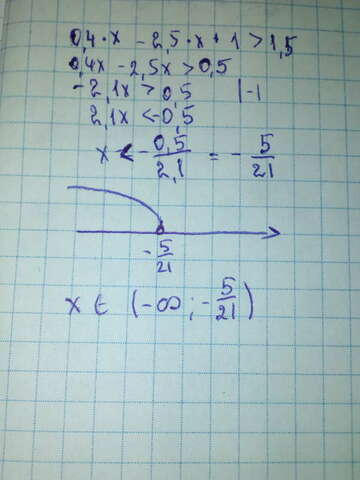 0,4·x - 2,5·x + 1 > 1,5
0,4x - 2,5x > 0,5
-2,1x > 0,5 |-1
2,1x < -0,5
x < - 0,5/2,1 = - 5/21
- 5/21
x ∈ (-∞; - 5/21)